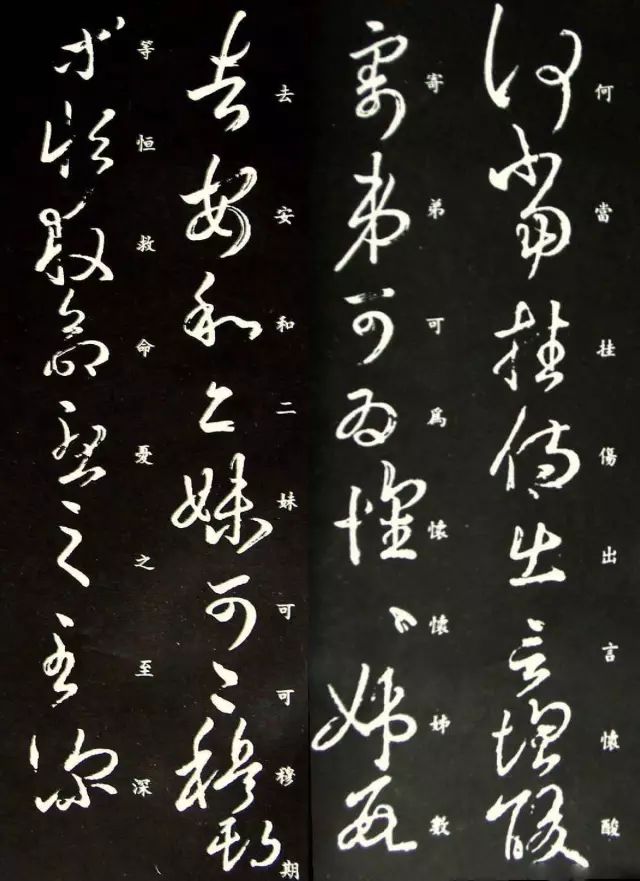 何當挂傷出言懷酸
寄弟可爲懷懷姊數
去安和二妹可可穆期
等恒救命憂之至深